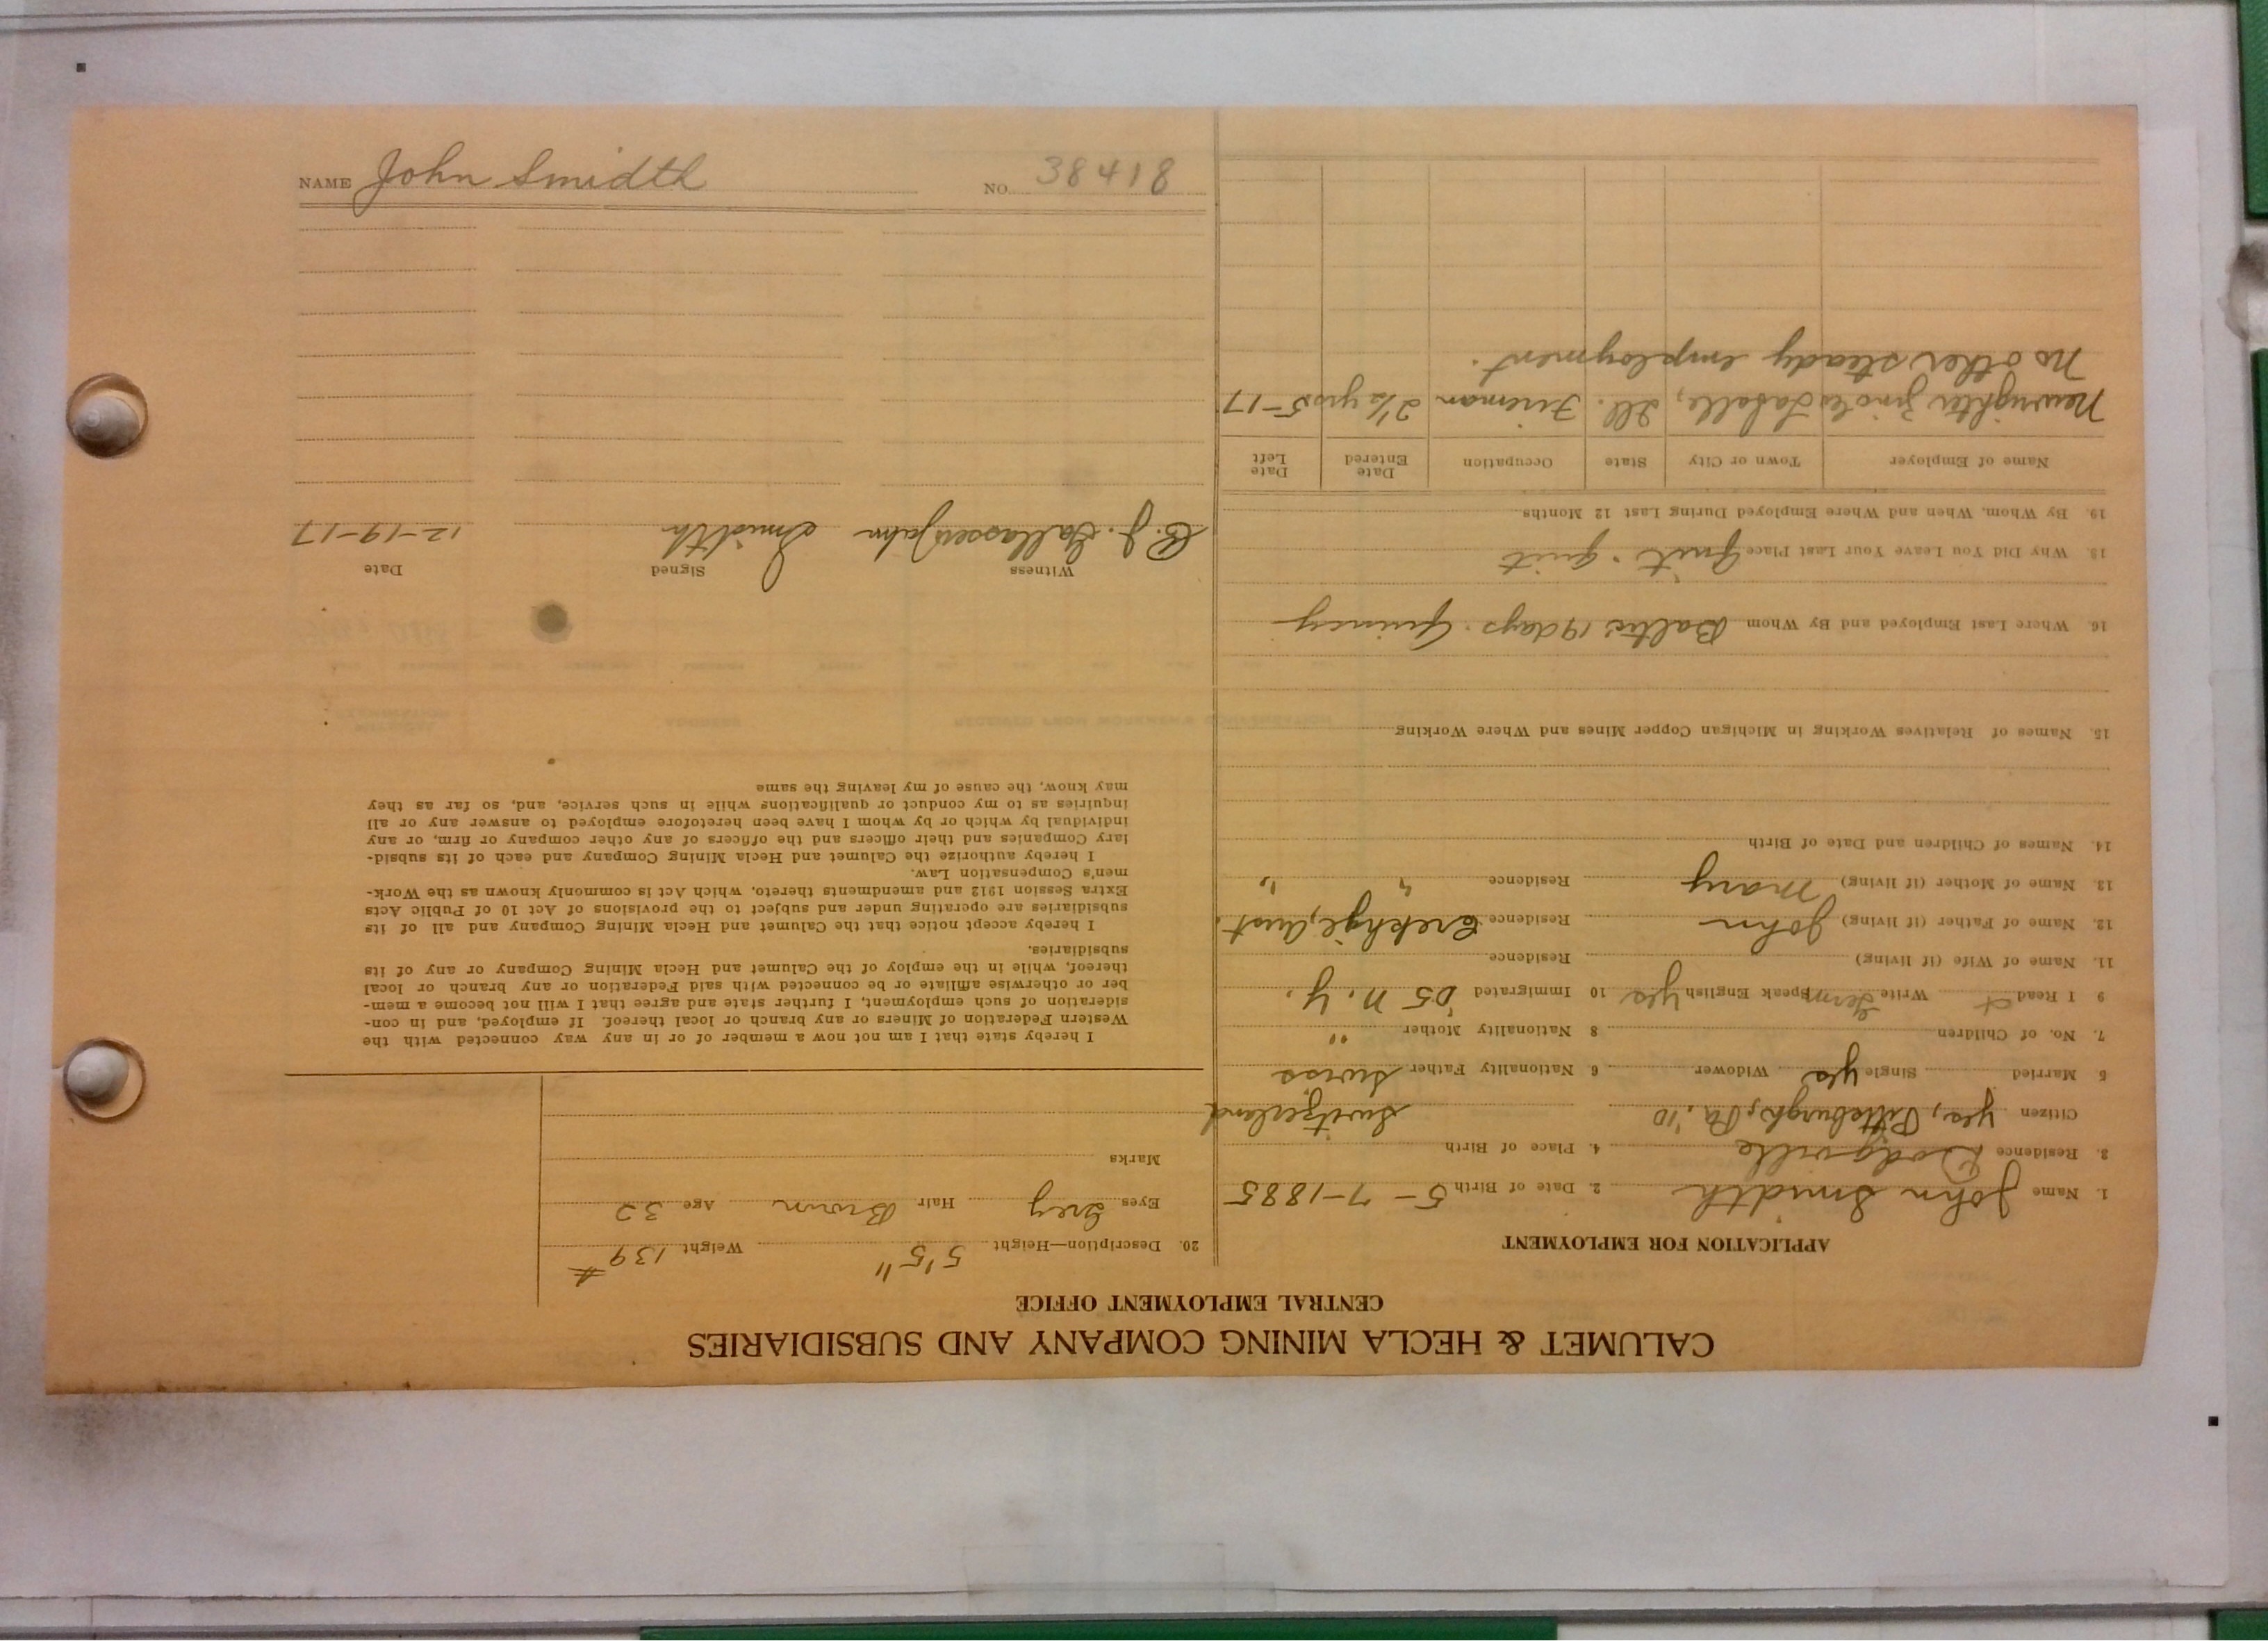 CALUMET & HECLA MINING COMPANY AND SUBSIDIARIES
CENTRAL EMPLOYMENT OFFICE
APPLICATION FOR EMPLOYMENT
1. Name John Smidth 2. Date of Birth 5-7-1885
3. Residence Dodgville 4. Place of Birth
Citizen yes, Pittsburgh, Pa. '10 Switzerland
5 Married Single yes Widower 6. Nationality Father Swiss
7. No. of Children 8 Nationality Mother "
9 I Read & Write Germ Speak English yes 10 Immigrated '05 N.Y.
11. Name of Wife (if living) Residence
12. Name of Father (if living) John Residence Aust.
13. Name of Mother (if living) Mary Residence " "
14. Names of Children and Date of Birth
15. Names of Relatives Working in Michigan Copper Mines and Where Working
16. Where Last Employed and By Whom Baltic 19 days. Quincy
18. Why Did You Leave Your Last Place Quit. quit
19. By Whom, When and Where Employed During Last 12 Months
Name of Employer Town or City State Occupation Date Entered Date Left
Lasalle, Ill. Fireman 2½ yrs 5-17
No other steady employment.
20. Description—Height 5'5" Weight 139#
Eyes Grey Hair Brown Age 32
Marks
I hereby state that I am not now a member of or in any way connected with the
Western Federation of Miners or any branch or local thereof. If employed, and in con-
sideration of such employment, I further state and agree that I will not become a mem-
ber or otherwise affiliate or be connected with said Federation or any branch or local
thereof, while in the employ of the Calumet and Hecla Mining Company or any of its
subsidiaries.
I hereby accept notice that the Calumet and Hecla Mining Company and all of its
subsidiaries are operating under and subject to the provisions of Act 10 of Public Acts
Extra Session 1912 and amendments thereto, which Act is commonly known as the Work-
men's Compensation Law.
I hereby authorize the Calumet and Hecla Mining Company and each of its subsid-
iary Companies and their officers and the officers of any other company or firm, or any
individual by which or by whom I have been heretofore employed to answer any or all
inquiries as to my conduct or qualifications while in such service, and, so far as they
may know, the cause of my leaving the same
Witness Signed Date
John Smidth 12-19-17
NAME John Smidth NO. 38418